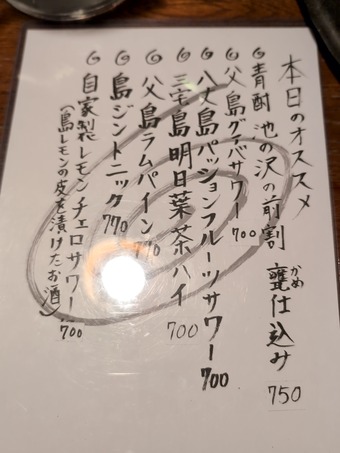 本日のオススメ
青酎 池の沢の前割 甕仕込み 750
かめ
父島グァバサワー 700
八丈島パッションフルーツサワー 700
三宅島明日葉茶ハイ 700
父島ラムパイン 770
島ジントニック 770
自家製レモンチェロサワー 700
(島レモンの皮を漬けたお酒)